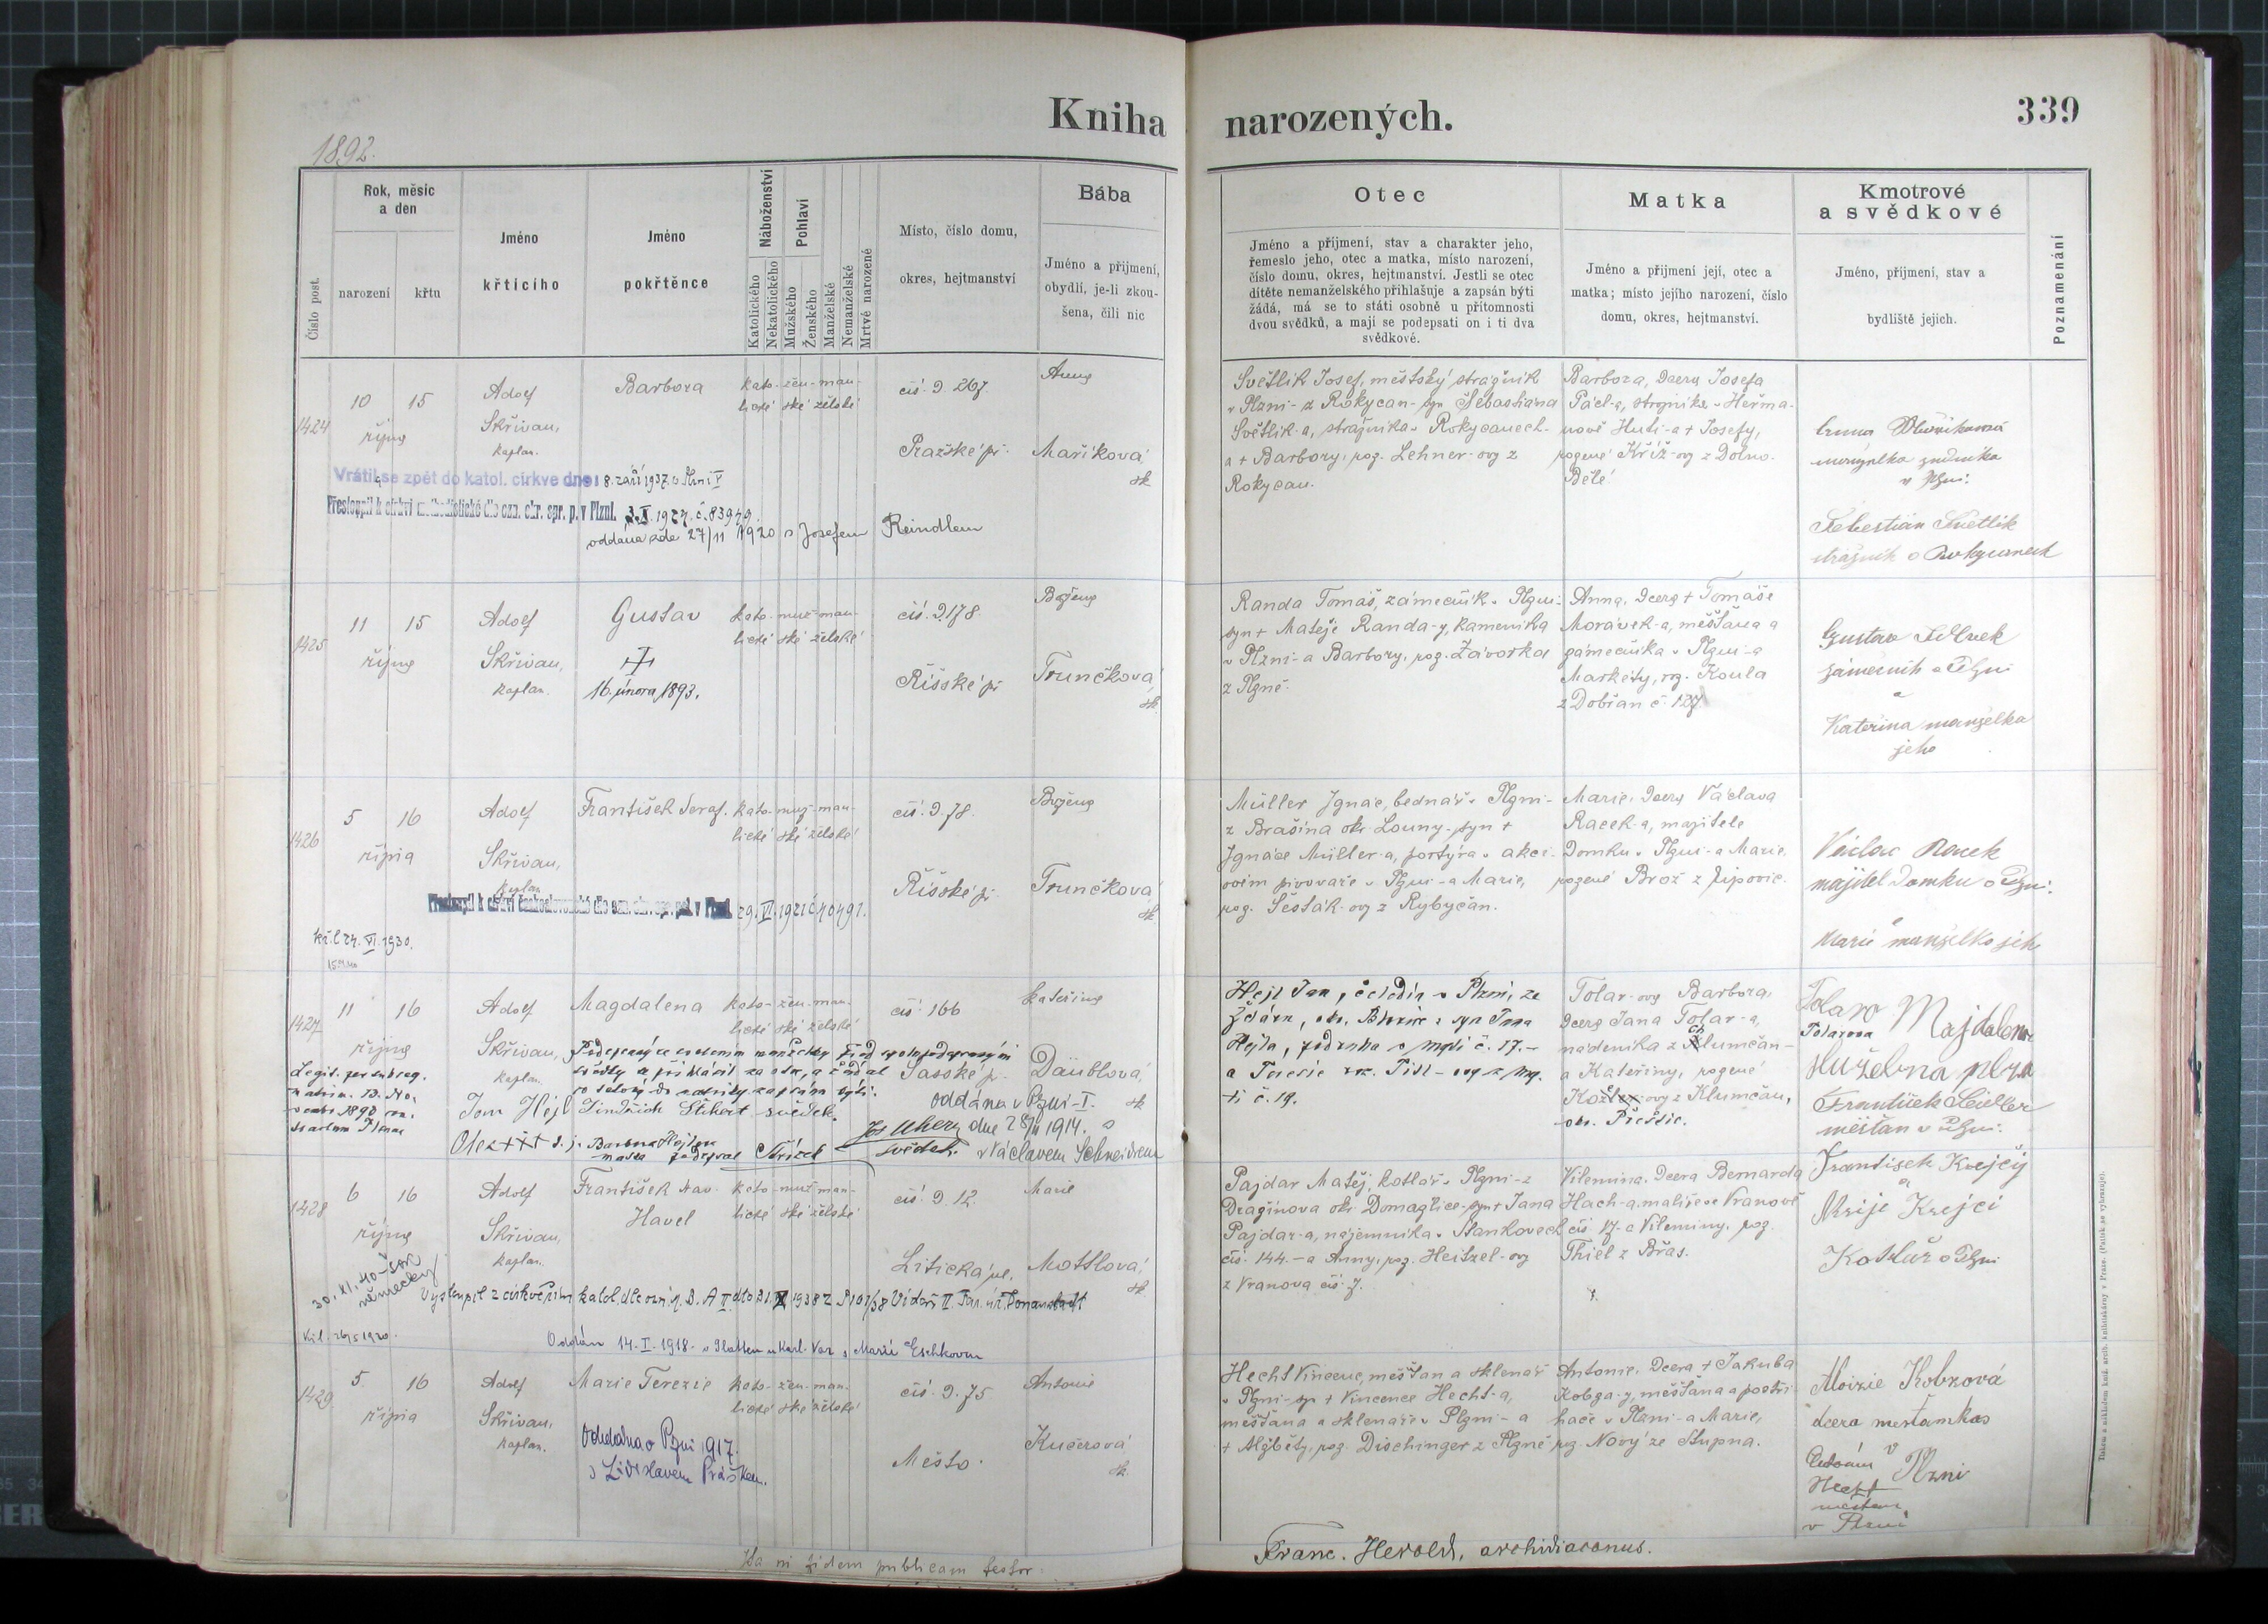 Kniha narozených.
339
1892.
Číslo post.
Rok, měsíc
a den
narození
křtu
Jméno
křticího
Jméno
pokřtěnce
Náboženství
Katolického
Nekatolického
Pohlaví
Mužského
Ženského
Manželské
Nemanželské
Mrtvě narozené
Místo, číslo domu,
okres, hejtmanství
Bába
Jméno a příjmení,
obydlí, je-li zkou-
šena, čili nic
Otec
Jméno a příjmení, stav a charakter jeho,
řemeslo jeho, otec a matka, místo narození,
číslo domu, okres, hejtmanství. Jestli se otec
dítěte nemanželského přihlašuje a zapsán býti
žádá, má se to státi osobně u přítomnosti
dvou svědků, a mají se podepsati on i ti dva
svědkové.
Matka
Jméno a přijmení její, otec a
matka; místo jejího narození, číslo
domu, okres, hejtmanství.
Kmotrové
a svědkové
Jméno, příjmení, stav a
bydliště jejich.
Poznamenání
1424
10 15
října
Adolf
Skřivan,
kaplan.
Barbora
kato- žen- man-
lické ské želské
čís. 9 267.
Pražské př.
Anna
Maříková
zk.
Světlík Josef, městský strážník
v Plzni - z Rokycan - syn Šebastiána
Světlík-a, strážníka v Rokycanech -
a + Barbory, roz. Lehner-ovy z
Rokycan.
Barbora, dcera Josefa
Pácl-a, strojníka v Heřma-
nově Huti - a + Josefy,
rozené Kříž-ovy z Dolno-
Bělé.
manželka
v Plzni.
Šebestián Světlík
strážník v Rokycanech
Vrátil se zpět do katol. církve dne: 8. září 1937. v Plzni V
Přestoupil k církvi methodistické dle ozn. okr. spr. p. v Plzni. 3. X. 1924. č. 83949.
oddána zde 27/11 1920 s Josefem Reindlem
1425
11 15
října
Adolf
Skřivan,
kaplan.
Gustav
16. února 1893.
kato- muž- man-
lické ské želské
čís. 9.178.
Říšské př.
Božena
Trunčková
zk.
Randa Tomáš, zámečník v Plzni -
syn + Matěje Randa-y, kameníka
v Plzni - a Barbory, roz. Závorka
z Plzně.
Anna, dcera + Tomáše
Morávek-a, měšťana a
zámečníka v Plzni - a
Markéty, roz. Koula
z Dobřan č. 127
Gustav
zámečník v Plzni
a
Kateřina manželka
jeho
1426
5 16
října
Adolf
Skřivan,
kaplan
František Seraf.
kato- muž- man-
lické ské želské
čís. 9.78.
Říšské př.
Božena
Trunčková
zk.
Müller Ignác, bednář v Plzni -
z Brašína okr. Louny - syn +
Ignáce Müller-a, portýra v akci-
ovém pivovaře v Plzni - a Marie,
roz. Šesták-ovy z Rybyčan.
Marie, dcera Václava
Racek-a, majitele
domku v Plzni - a Marie,
rozené Brož z Lipovic.
Václav Racek
majitel domku v Plzni.
a
Marie manželka jeho
Přestoupil k církvi československé dle ozn. okr. spr. pol. v Plzni 29. VI. 1921 č. 40491.
kř. l. 24. VI. 1930.
1427
11 16
října
Adolf
Skřivan,
kaplan.
Magdalena
kato- žen- man-
lické ské želské
čís. 166
Saské př.
Kateřina
Däublová
zk.
Hejl Jan, čeledín v Plzni, ze
Ždára, okr. Blovice: syn Jana
Hejla, podruha v č. 17. -
a Terezie roz.
č. 19.
Tolar-ovy Barbora,
dcera Jana Tolar-a,
nádeníka z Chlumčan -
a Kateřiny, rozené
z Chlumčan,
okr. Přeštic.
Tolaro Majdalena
Tolarova
služebna plza
František
měšťan v Plzni.
Podepsaný se
svědky a přihlásil za otce, a žádal
do matriky zapsán býti.
Jan Hejl Jindřich svědek.
Otec +++ Barbora Hejlova
matka podepsal
svědek.
oddána v Plzni - I.
dne 28/II 1914. s
Václavem Schneidrem
1428
6 16
října
Adolf
Skřivan,
kaplan.
František Xav.
Havel
kato- muž- man-
lické ské želské
čís. 9. 12.
Litická ul.
Marie
Mottlová
zk.
Pajdar Matěj, kotlář v Plzni - z
Dražínova okr. Domažlice - syn + Jana
Pajdar-a, nájemníka v Stankovech
čís. 144. - a Anny, roz. Heitzel-ovy
z Vranova čís. 7.
Vilemina, dcera Bernarda
Hach-a, malíře ve Vranově
čís. 17. - a Vileminy, roz.
Thiel z Břas.
František Krejčý
a
Marije Krejči
Kotlář v Plzni
Vystoupil z církve řím. katol. dle ozn.
Oddán 14. I. 1918 v u Karl. Var s Marií Eschkovou
30. XI. 40
německý
1429
5 16
října
Adolf
Skřivan,
kaplan.
Marie Terezie
kato- žen- man-
lické ské želské
čís. 9. 75
Město.
Antonie
Kučerová
zk.
Hecht Vincenc, měšťan a sklenář
v Plzni - syn + Vincence Hecht-a,
měšťana a sklenáře v Plzni - a
+ Alžběty, roz. Dischinger z Plzně
Antonie, dcera + Jakuba
Kobza-y, měšťána a postři-
hače v Plzni - a Marie,
roz. Nový ze Stupna.
Aloizie Kobzová
dcera mestanska
v Plzni
Hecht
měšťan
v Plzni
Oddána v Plzni 1917.
s Zdislavem Práškem.
Ita ni fidem publicam testor:
Franc. Herold, archidiaconus.